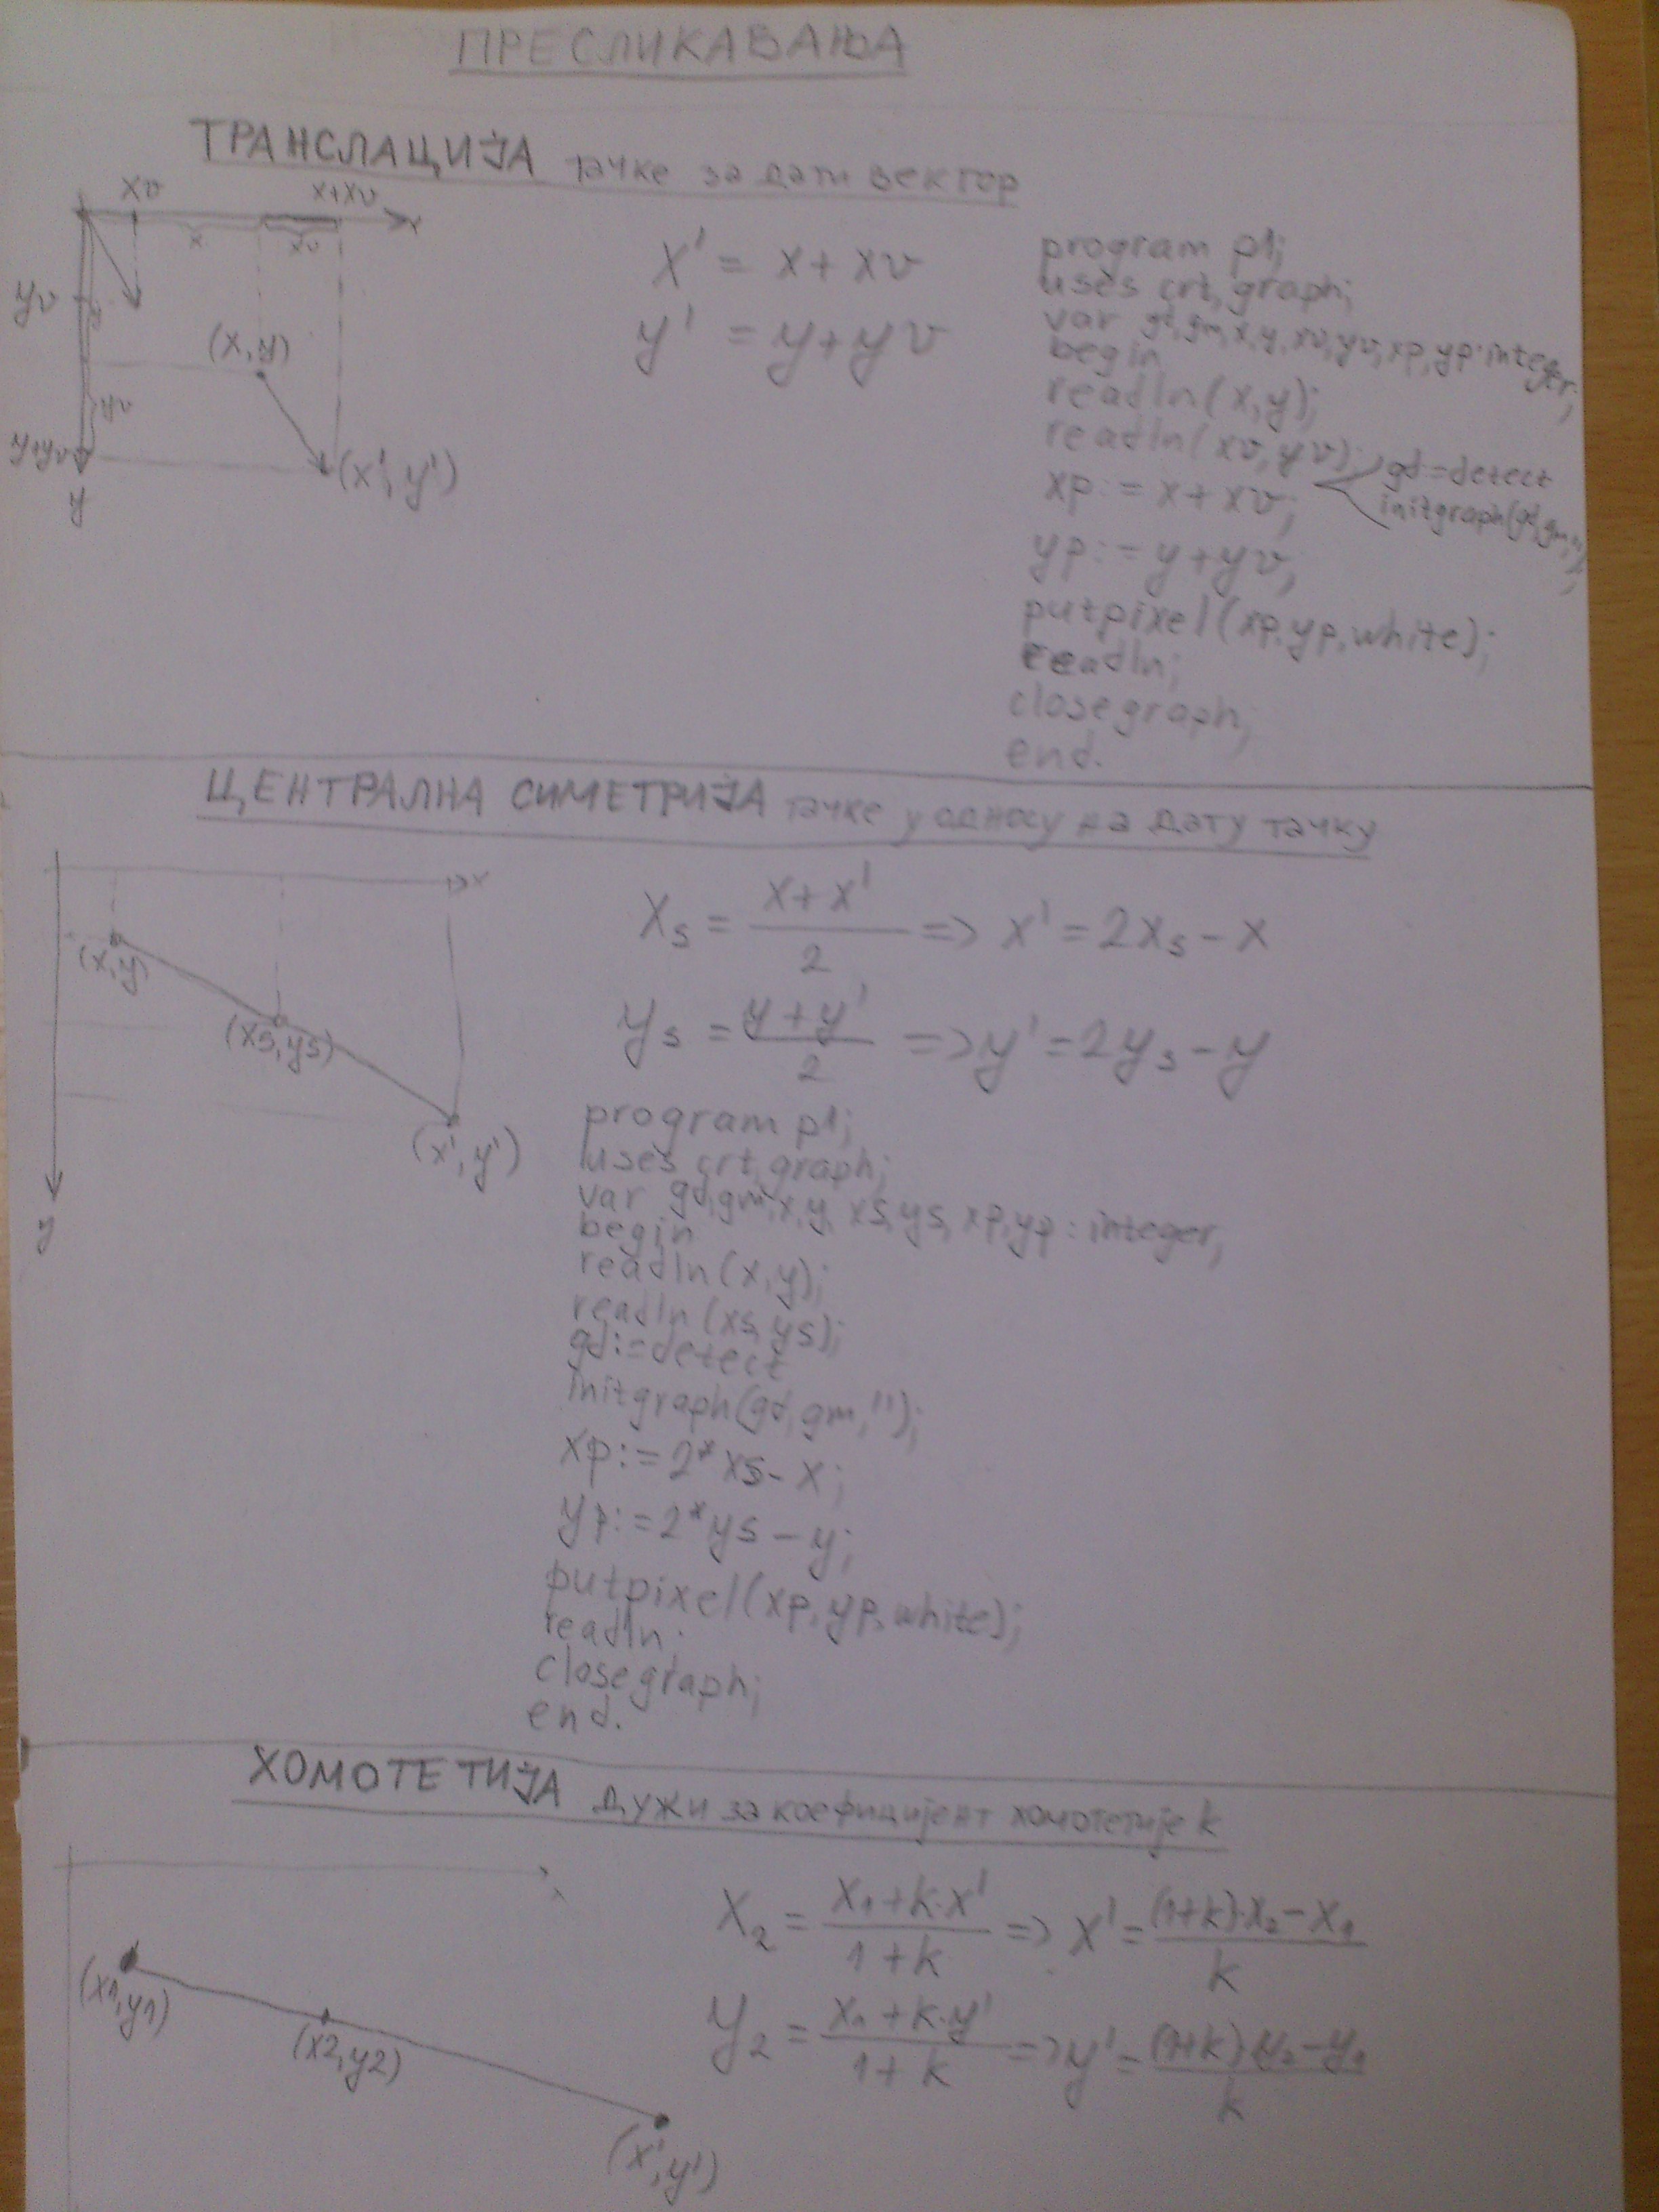 ПРЕСЛИКАВАЊА
ТРАНСЛАЦИЈА тачке за дати вектор
xv x+xv
x
x xv
yv
y
(x,y)
yv
y+yv
(x', y')
y
x' = x + xv
y' = y + yv
program p1;
uses crt, graph;
var gd, gm, x, y, xv, yv, xp, yp: integer;
begin
readln(x,y);
readln(xv, yv);
gd:=detect
initgraph(gd,gm,'');
xp:= x + xv;
yp:= y + yv;
putpixel(xp, yp, white);
readln;
closegraph;
end.
ЦЕНТРАЛНА СИМЕТРИЈА тачке у односу на дату тачку
x
(x,y)
(xs,ys)
(x', y')
y
xs = x + x' / 2 => x' = 2xs - x
ys = y + y' / 2 => y' = 2ys - y
program p1;
uses crt, graph;
var gd, gm, x, y, xs, ys, xp, yp : integer;
begin
readln(x,y);
readln(xs, ys);
gd:=detect
initgraph(gd, gm, '');
xp:=2*xs - x;
yp:=2*ys - y;
putpixel(xp, yp, white);
readln;
closegraph;
end.
ХОМОТЕТИЈА дужи за коефицијент хомотетије k
x
(x1,y1)
(x2,y2)
(x', y')
x2 = x1 + k·x' / 1 + k => x' = (1+k)·x2 - x1 / k
y2 = x1 + k·y' / 1 + k => y' = (1+k) y2 - y1 / k